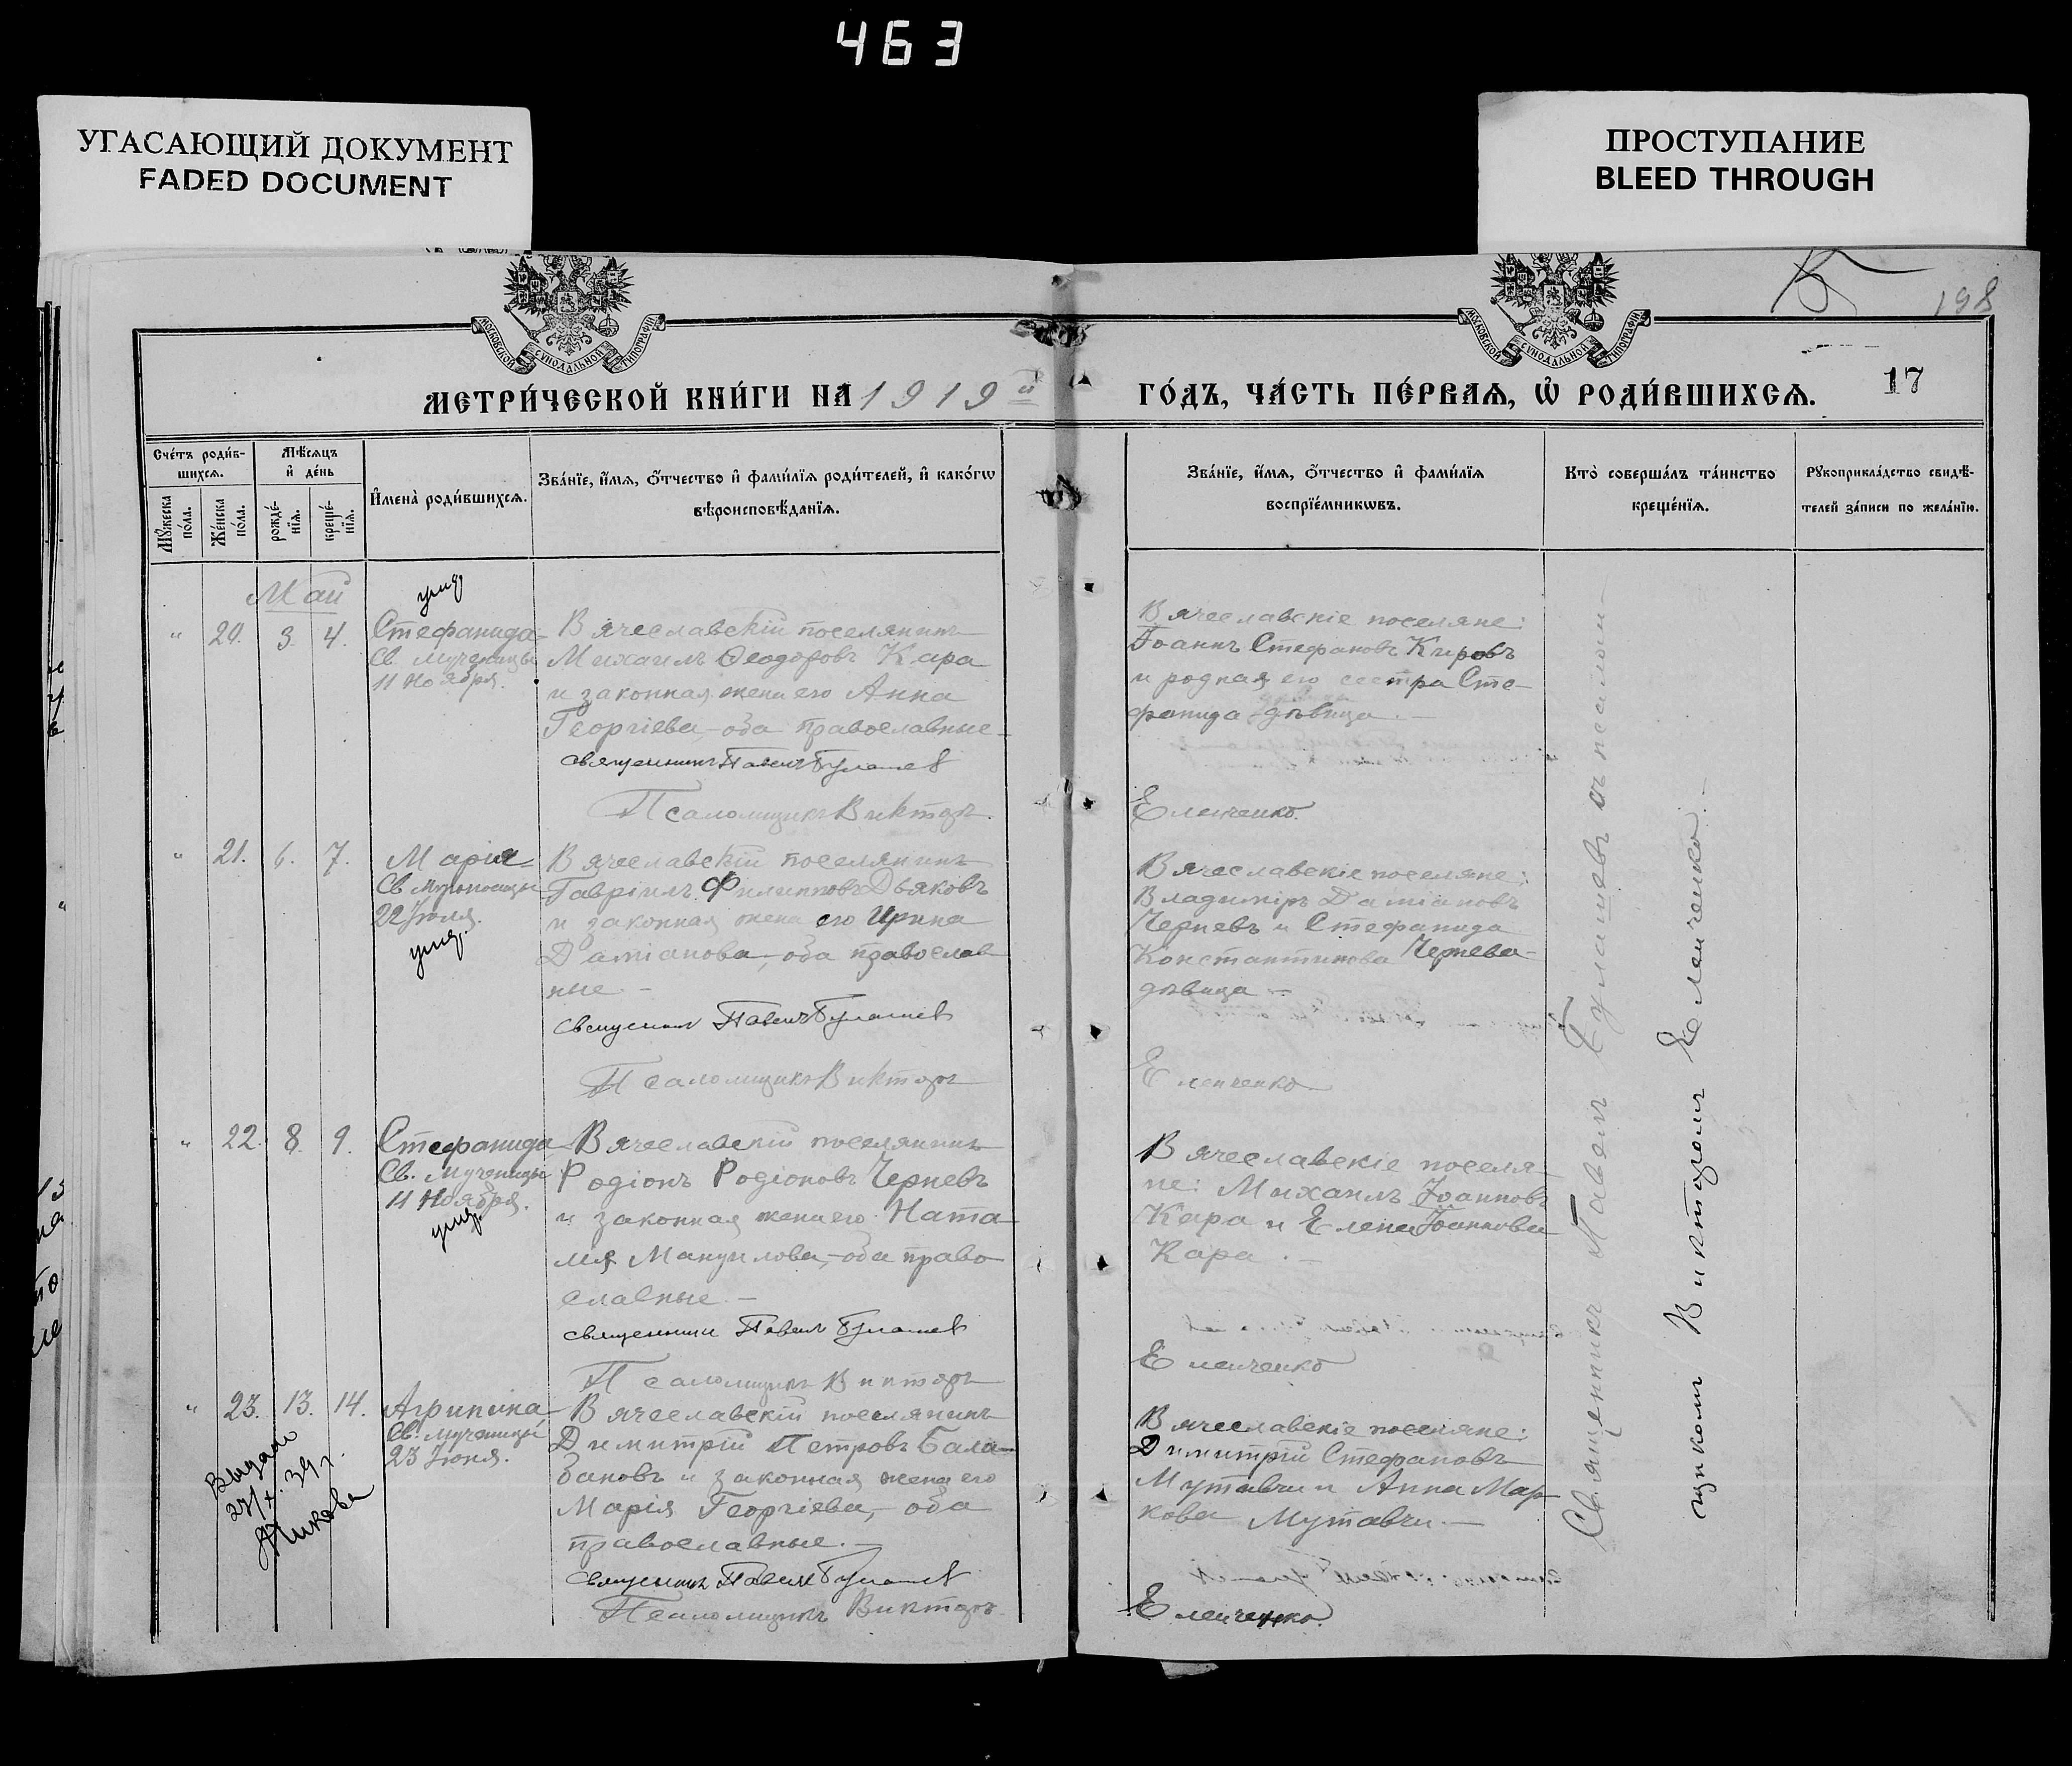 463
УГАСАЮЩИЙ ДОКУМЕНТ
FADED DOCUMENT
ПРОСТУПАНИЕ
BLEED THROUGH
198
МОСКОВСКОЙ СѴНОДАЛЬНОЙ ТИПОГРАФІИ
МОСКОВСКОЙ СѴНОДАЛЬНОЙ ТИПОГРАФІИ
МЕТРИ́ЧЕСКОЙ КНИ́ГИ НА 1919й
ГО́ДЪ, ЧА́СТЬ ПЕ́РВАѦ, Ѡ҆ РОДИ́ВШИХСѦ.
17
Сче́тъ роди́в-
шихсѧ.
Мѣ́сѧцъ
и҆ де́нь
Мꙋ́жеска
по́ла.
Же́нска
по́ла.
рожде́-
нїѧ.
креще́-
нїѧ.
И҆мена̀ роди́вшихсѧ.
Зва́нїе, и҆́мѧ, ѻ҆́тчество и҆ фами́лїѧ роди́телей, и҆ како́гѡ
вѣроисповѣ́данїѧ.
Зва́нїе, и҆́мѧ, ѻ҆́тчество и҆ фами́лїѧ
воспрїе́мникѡвъ.
Кто̀ соверша́лъ та́инство
креще́нїѧ.
Рꙋкоприкла́дство свидѣ́-
телей за́писи по жела́нїю.
Май
" 20. 3. 4. Стефанида
Св. мученицы
11 Ноября.
Вячеславскій поселянинъ
Михаилъ Ѳеодоровъ Кара
и законная жена его Анна
Георгіева,-оба православные-
священникъ Павелъ Гулашев
Псаломщикъ Викторъ
Вячеславскіе поселяне:
Іоаннъ Стефановъ Кировъ
и родная его сестра Сте-
фанида - дѣвица. -
Еленченко.
" 21. 6. 7. Марія
Св мѵроносицы
22 Іюля.
Вячеславскій поселянинъ
Гавріилъ Филипповъ Дьяковъ
и законная жена его Ирина
Даміанова,-оба православ
ные. -
священник Павелъ Гулашев
Псаломщикъ Викторъ
Вячеславскіе поселяне:
Владиміръ Даміановъ
Черневъ и Стефанида
Константинова Чернева-
дѣвица -
Еленченко
" 22. 8. 9. Стефанида
Св. мученицы
11 Ноября.
Вячеславскій поселянинъ
Родіонъ Родіоновъ Черневъ
и законная жена его Ната-
лія Мануилова,-оба право
славные. -
священник Павел Гулашев
Псаломщикъ Викторъ
Вячеславскіе поселя-
не: Михаилъ Іоанновъ
Кара и Елена Іоаннова
Кара. -
Еленченко
" 23. 13. 14. Агрипина
Св. мученицы
23 Іюня.
Вячеславскій поселянинъ
Димитрій Петровъ Бала-
бановъ и законная жена его
Марія Георгіева,- оба
православные. -
Священник Павел Гулашев
Псаломщикъ Викторъ
Вячеславскіе поселяне:
Димитрій Стефановъ
Мутавчи и Анна Мар-
кова Мутавчи. -
Еленченко.
Священникъ Павелъ Гулашевъ съ псалом-
щикомъ Викторомъ Еленченко. -